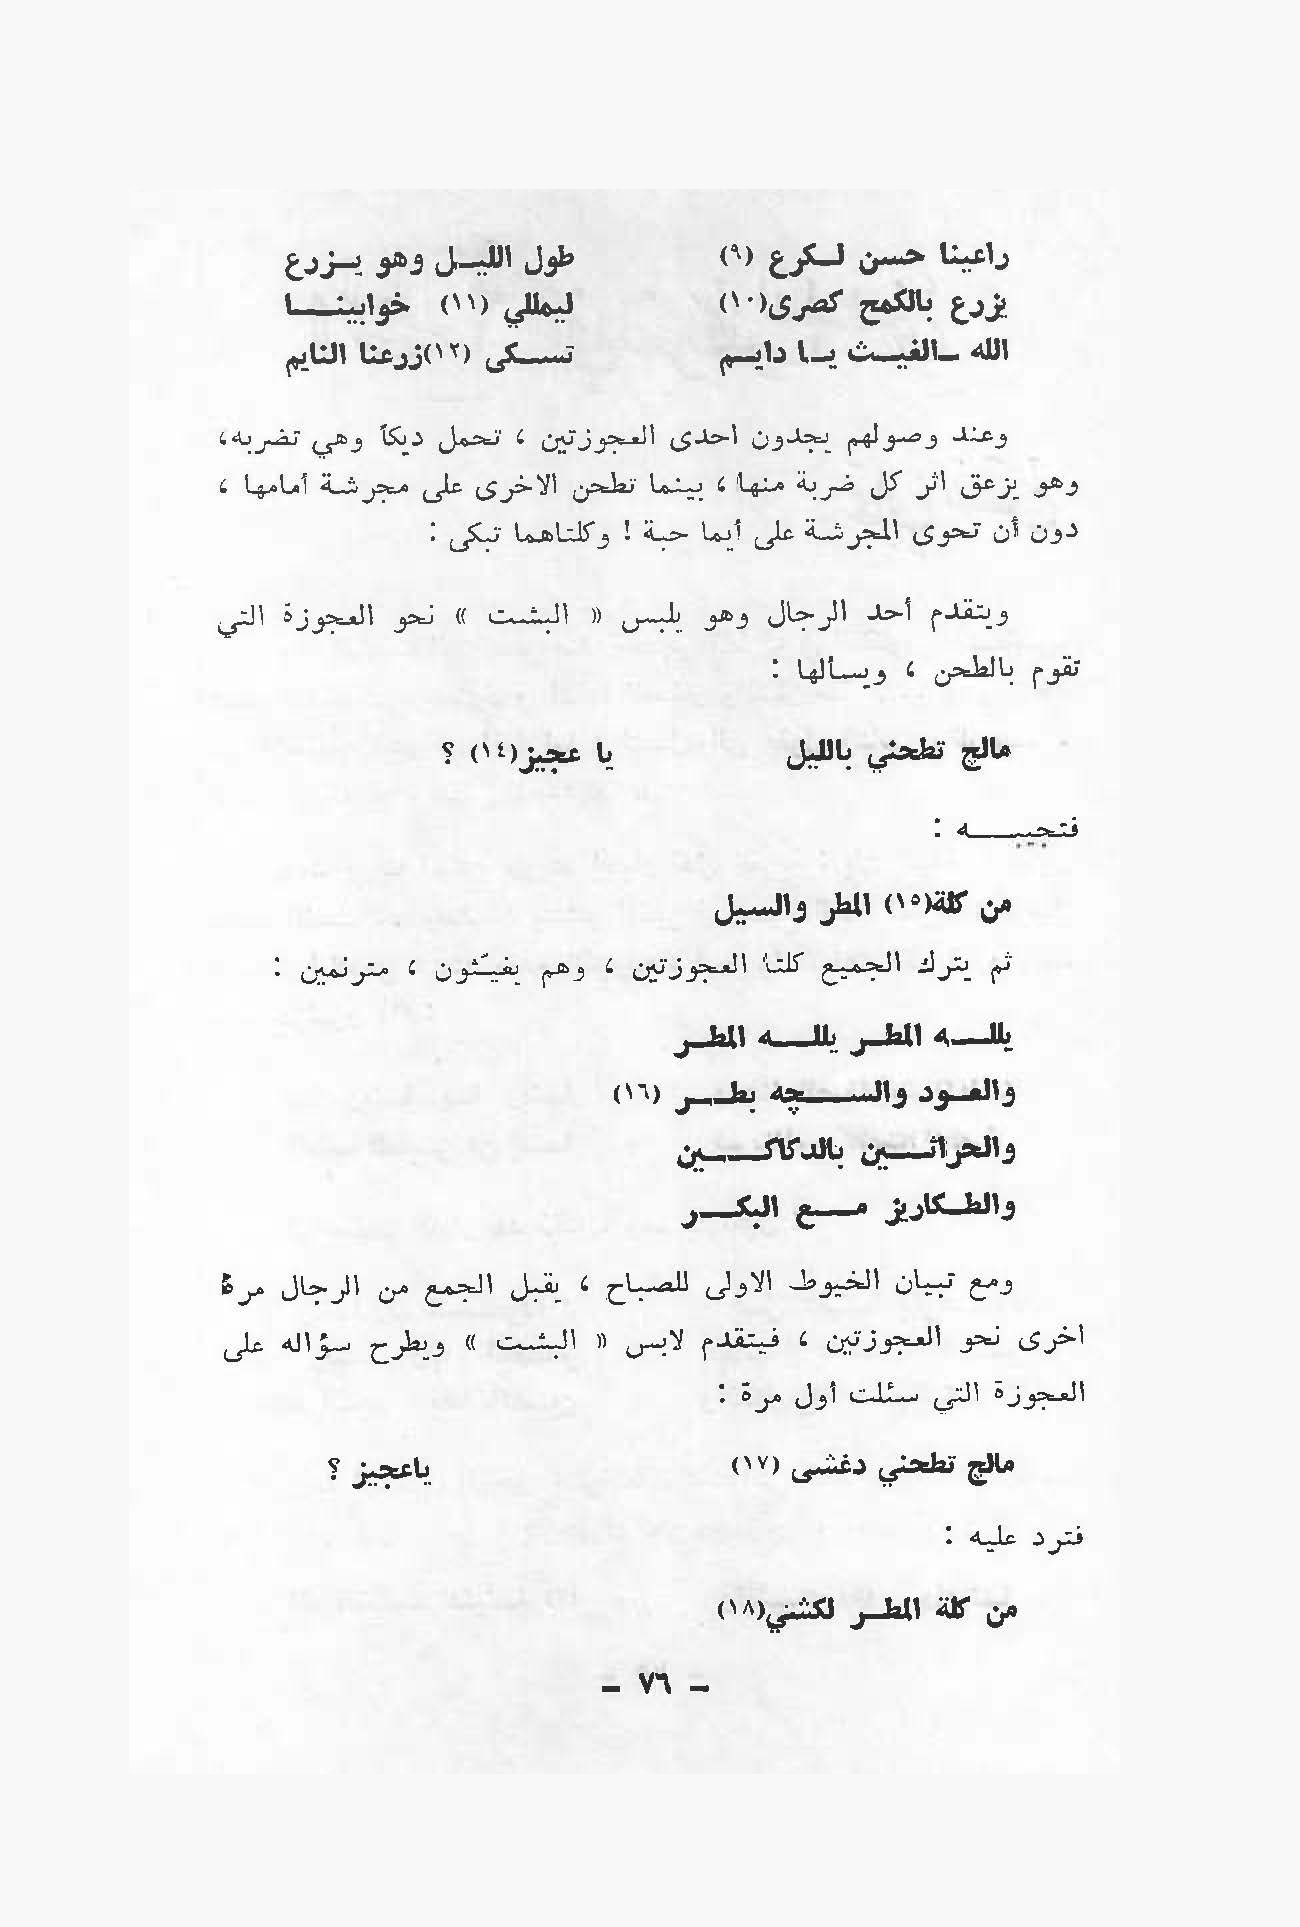 راعينا حسن لـكرع (٩) طول الليـل وهو يـزرع
يزرع بالكمح كصرى(١٠) ليمللي (١١) خوابينــا
الله ـالغيـث يـا دايـم تسـكى (١٢)زرعنا النايم
وعند وصولهم يجدون احدى العجوزتين ، تحمل ديكاً وهي تضربه،
وهو يزعق اثر كل ضربة منها ، بينما تطحن الاخرى على مجرشة أمامها ،
دون أن تحوى المجرشة على أيما حبة ! وكلتاهما تبكى :
ويتقدم أحد الرجال وهو يلبس « البشت » نحو العجوزة التي
تقوم بالطحن ، ويسألها :
مالج تطحني بالليل يا عجيز(١٤) ؟
فتجيبــه :
من كلة(١٥) المطر والسيل
ثم يترك الجميع كلتا العجوزتين ، وهم يغيـّثون ، مترنمين :
يللـه المطـر يللـه المطـر
والعـود والســچه بطـر (١٦)
والحراثـين بالدكاكــين
والطـكاريز مـع البكـر
ومع تبيان الخيوط الاولى للصباح ، يقبل الجمع من الرجال مرة
اخرى نحو العجوزتين ، فيتقدم لابس « البشت » ويطرح سؤاله على
العجوزة التي سئلت أول مرة :
مالج تطحني دغشى (١٧) ياعجيز ؟
فترد عليه :
من كلة المطـر لكشني(١٨)
- ٧٦ -